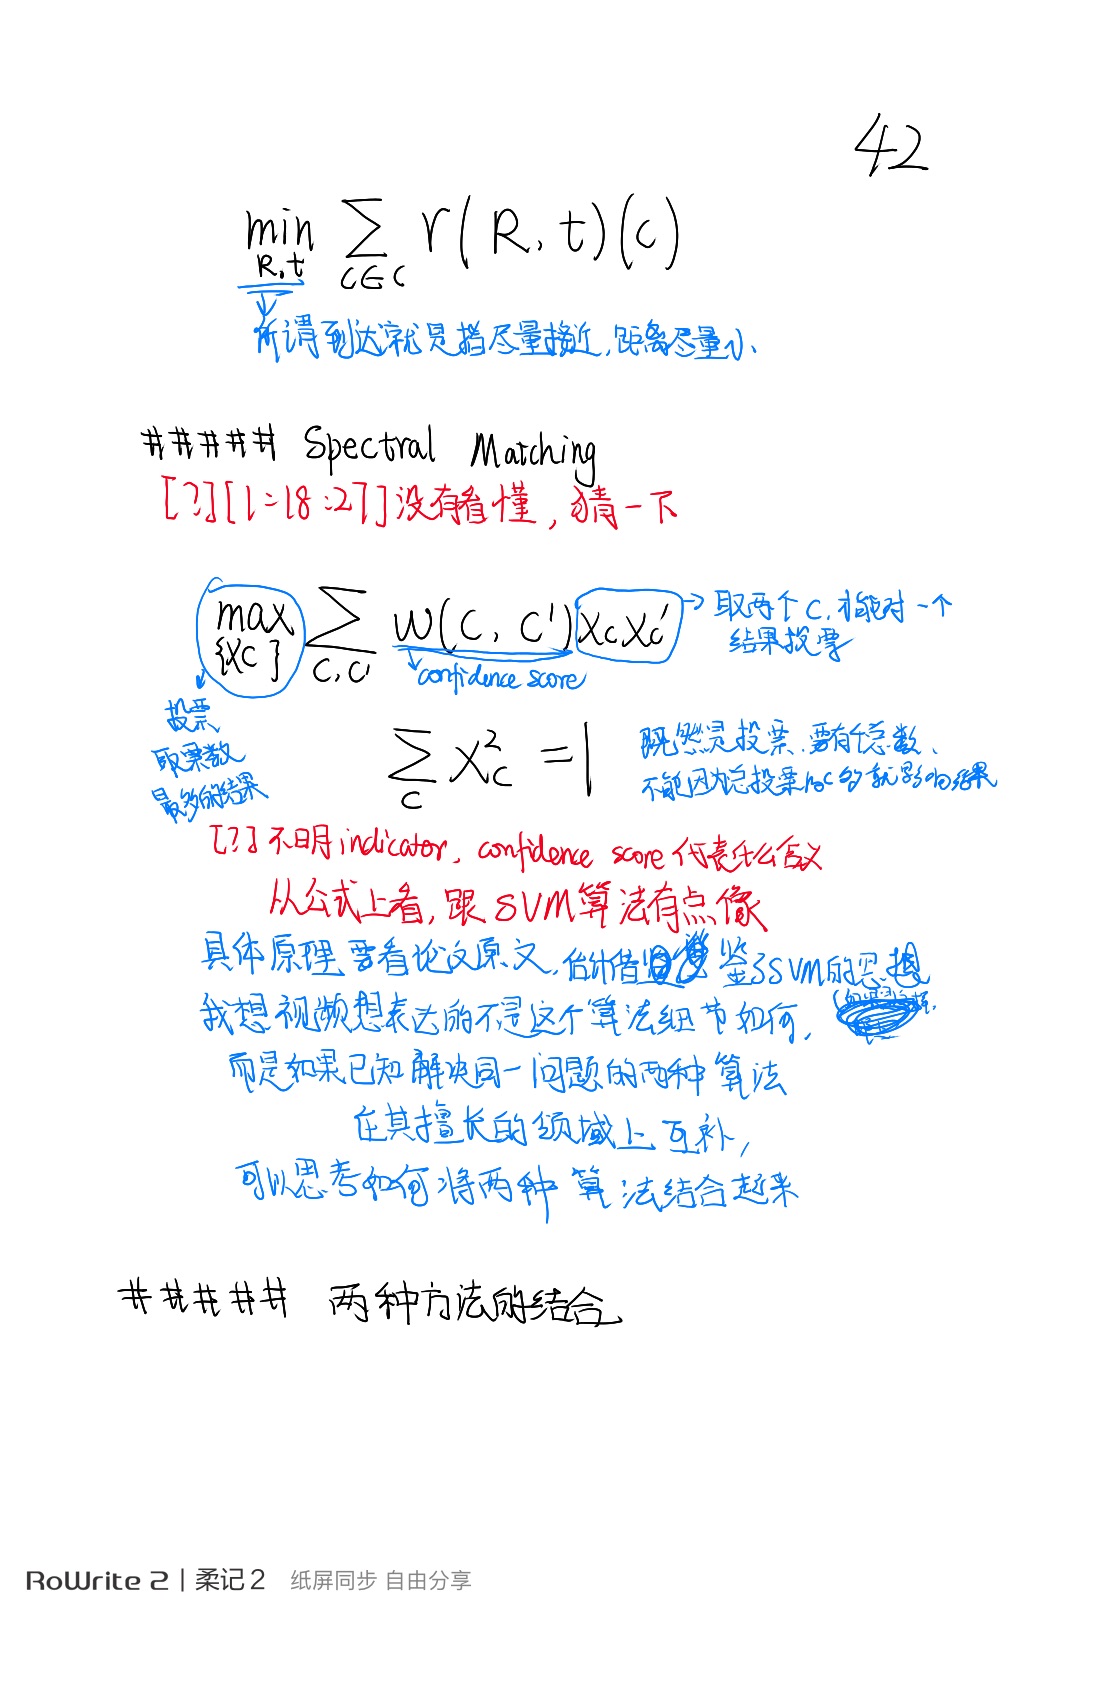 42
min Σ r(R,t)(c)
R,t c∈C
所谓到达就是指尽量接近,距离尽量小、
##### Spectral Matching
[?][1:18:27]没有看懂,猜一下
max Σ w(c, c')xcxc' → 取两个c,才能对一个
{xc} c,c' 结果投票
confidence score
投票
取票数
最多的结果
Σ x²c = 1
c
既然是投票、要有个总数、
不能因为总投票 多就影响结果
[?]不明indicator, confidence score代表什么含义
从公式上看,跟SVM算法有点像
具体原理要看论文原文,估计借鉴了SVM的思想
我想视频想表达的不是这个算法细节如何,
而是如果已知解决同一问题的两种算法
在其擅长的领域上互补,
可以思考如何将两种算法结合起来
##### 两种方法的结合
RoWrite 2 | 柔记2 纸屏同步 自由分享